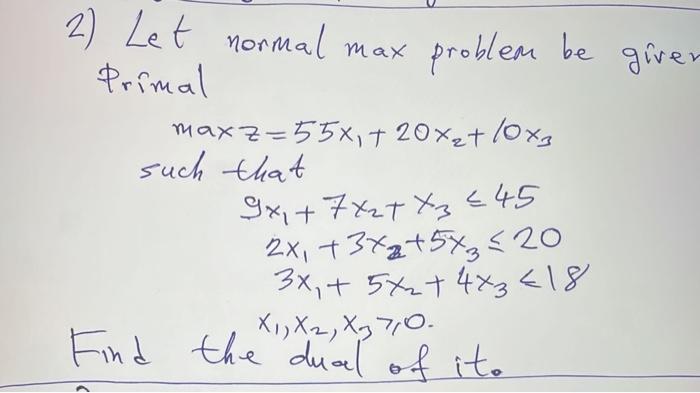 2) Let normal max problem be given
Primal
max z = 55x₁ + 20x₂ + 10x₃
such that
9x₁ + 7x₂ + x₃ ≤ 45
2x₁ + 3x₂ + 5x₃ ≤ 20
3x₁ + 5x₂ + 4x₃ ≤ 18
x₁, x₂, x₃ ≥ 0.
Find the dual of it.